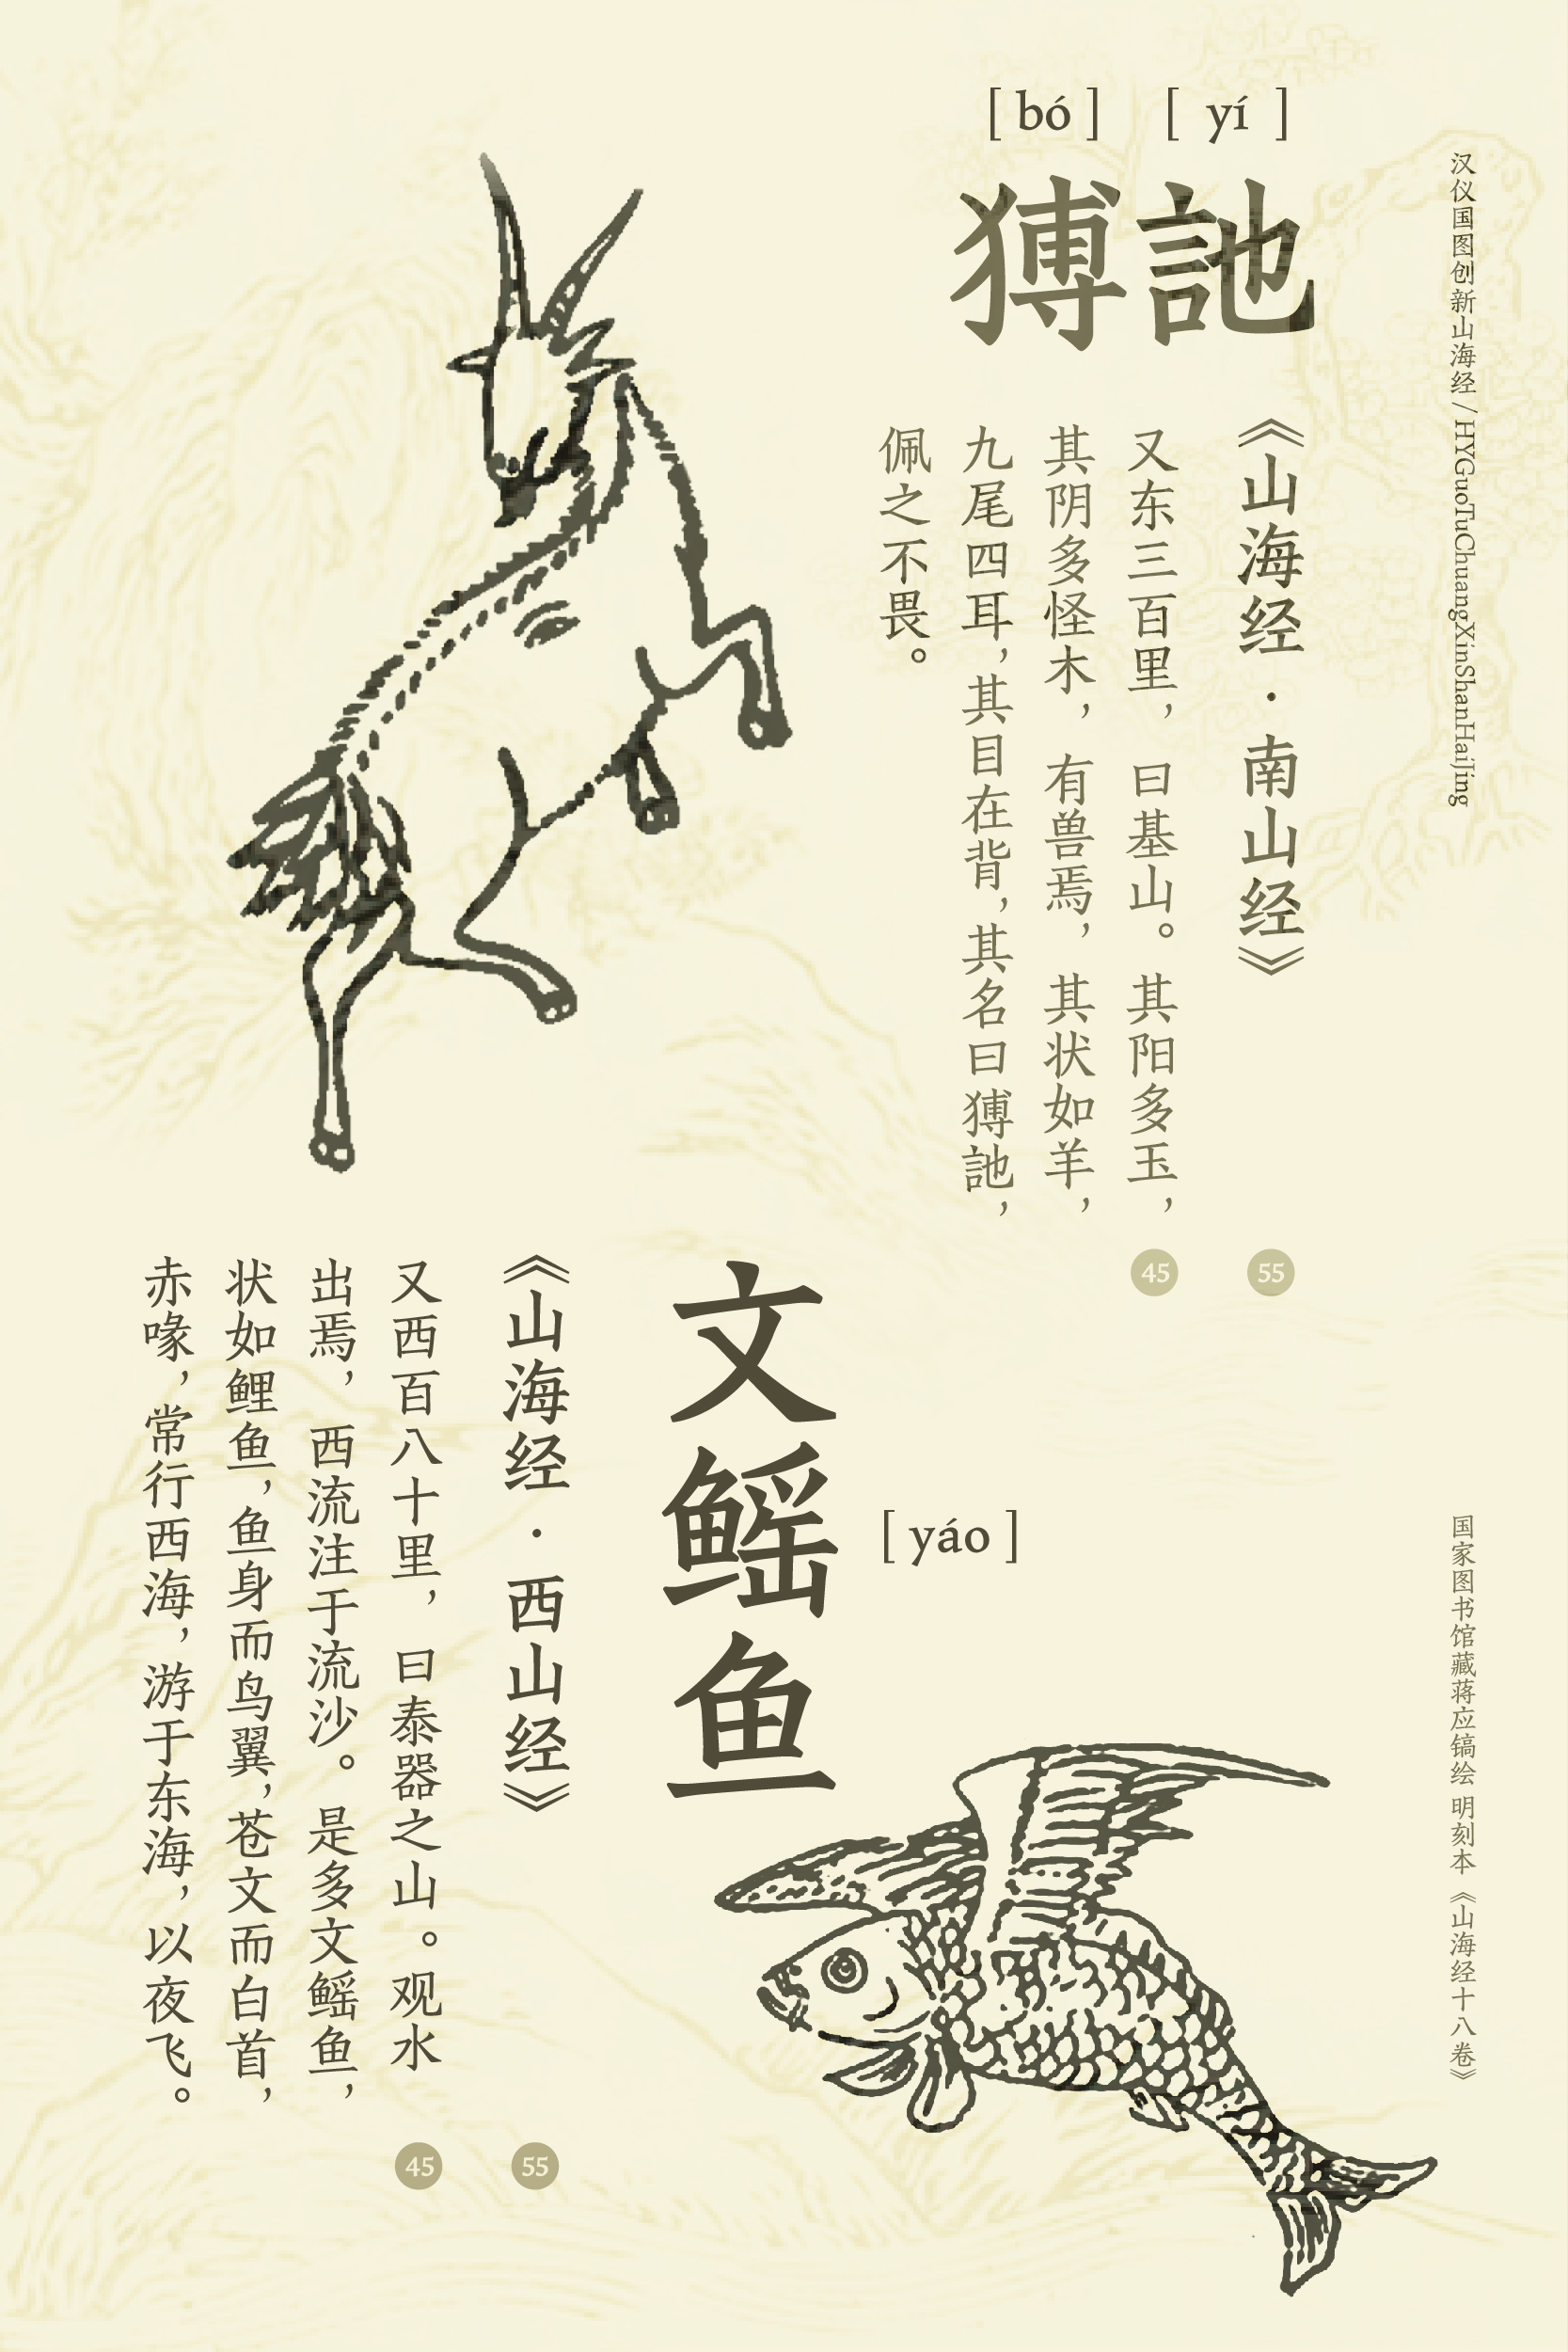 [ bó ] [ yí ]
猼訑
汉仪国图创新山海经 / HYGuoTuChuangXinShanHaiJing
《山海经·南山经》
又东三百里，曰基山。其阳多玉，
其阴多怪木，有兽焉，其状如羊，
九尾四耳，其目在背，其名曰猼訑，
佩之不畏。
45
55
国家图书馆藏蒋应镐绘 明刻本《山海经十八卷》
文鳐鱼
[ yáo ]
《山海经·西山经》
又西百八十里，曰泰器之山。观水
出焉，西流注于流沙。是多文鳐鱼，
状如鲤鱼，鱼身而鸟翼，苍文而白首，
赤喙，常行西海，游于东海，以夜飞。
45
55